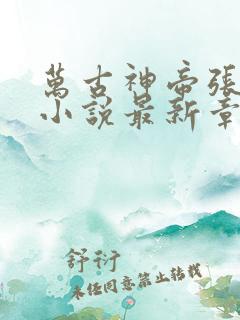 萬古神帝張
小說最新章
舒衍
未經同意禁止轉載